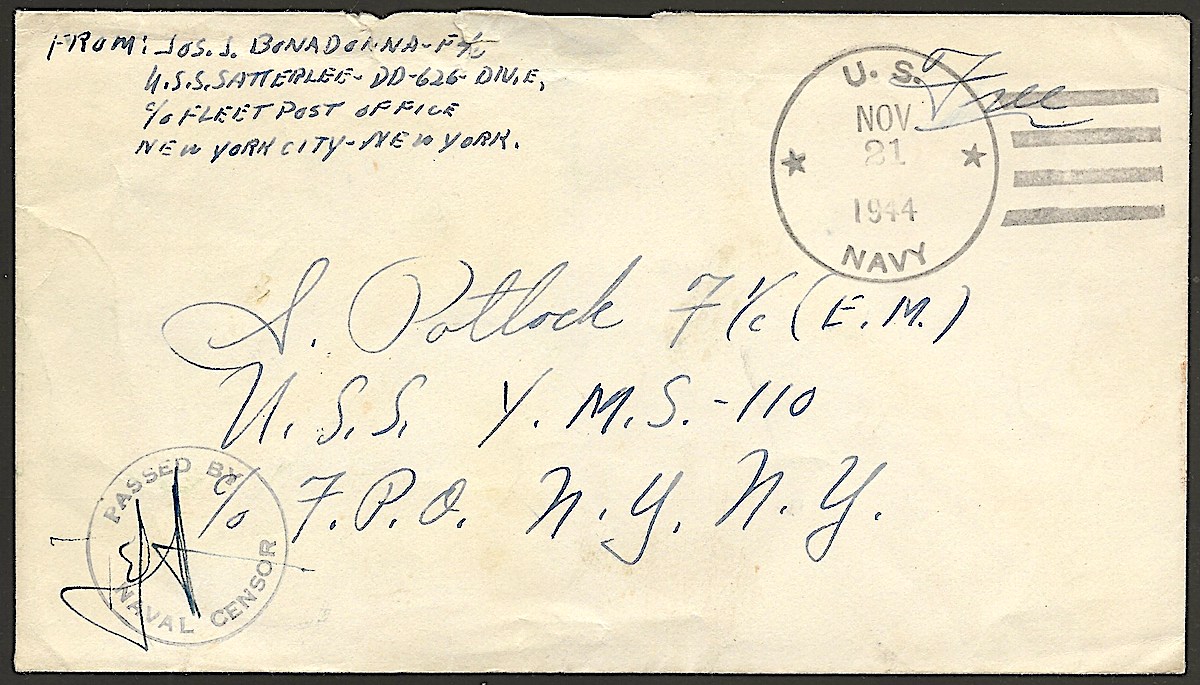 FROM: JOS. J. BONADONNA - F 1/C
U.S.S. SATTERLEE - DD-626 - DIV. E,
c/o FLEET POST OFFICE
NEW YORK CITY - NEW YORK.
U. S.
NOV
21
1944
NAVY
Free
S. Potlock F 1/c (E.M.)
U.S.S. Y.M.S.-110
c/o F.P.O. N.Y. N.Y.
PASSED BY
NAVAL CENSOR